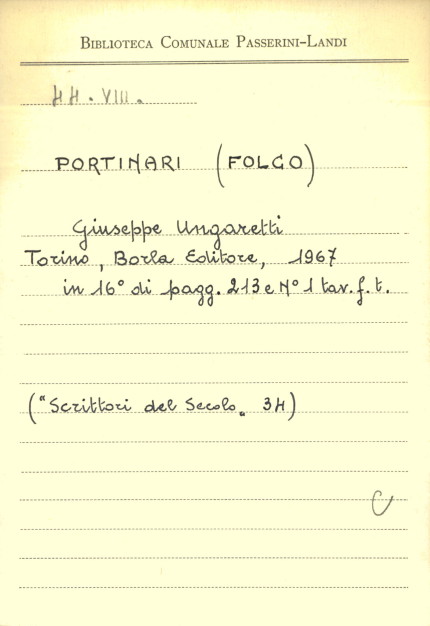 BIBLIOTECA COMUNALE PASSERINI-LANDI
44. VIII.
PORTINARI (FOLCO)
Giuseppe Ungaretti
Torino, Borla Editore, 1967
in 16° di pagg. 213 e N° 1 tav. f. t.
("Scrittori del Secolo„ 34)
C